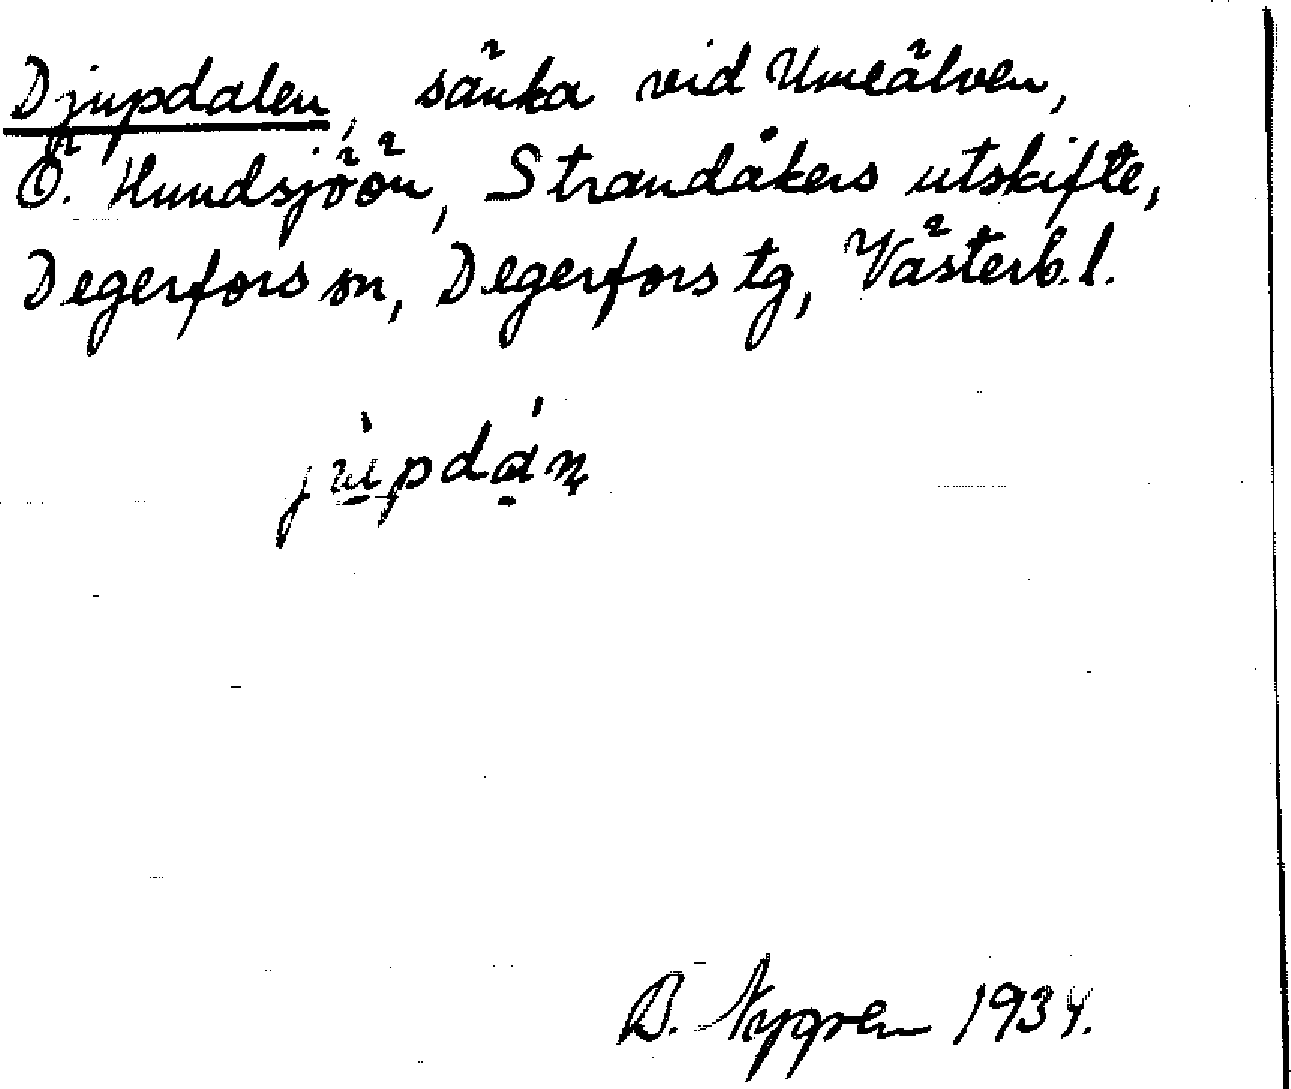 Djupdalen, sänka vid Umeälven,
Ö. Hundsjöön, Strandåkers utskifte,
Degerfors sn, Degerfors tg, Västerb. l.
jùpdάn
B. Nygren 1934.